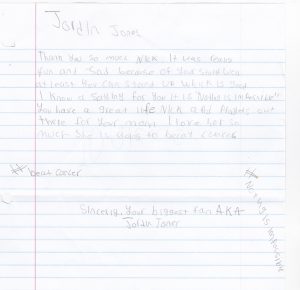 Jordin Jones
Thank you so much Nick. It was really
fun and sad because of your
at least you can stand up which is good
I know a saying for you it is Nothig is imposible
You have a great life Nick and Prayers out
there for your mom. I love her so
much she is going to beat cancer
# beat cancer
# Nothing is impossible
Sincerly, your biggest fan AKA
Jordin Jones